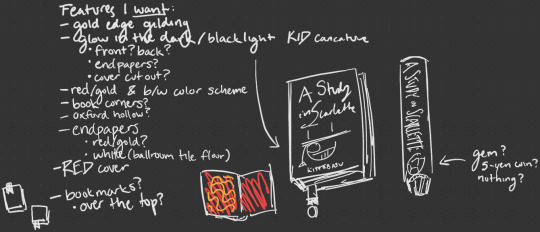 Features I want:
- gold edge gilding
- glow in the dark/blacklight KID caricature
• front? back?
• endpapers?
• cover cut out?
- red/gold & b/w color scheme
- book corners?
- oxford hollow?
- endpapers
• red/gold?
• white (ballroom tile floor)
- RED cover
- bookmarks?
• over the top?
A Study
in Scarlette
KITTEBASU
A STUDY IN SCARLETTE
gem?
5-yen coin?
nothing?